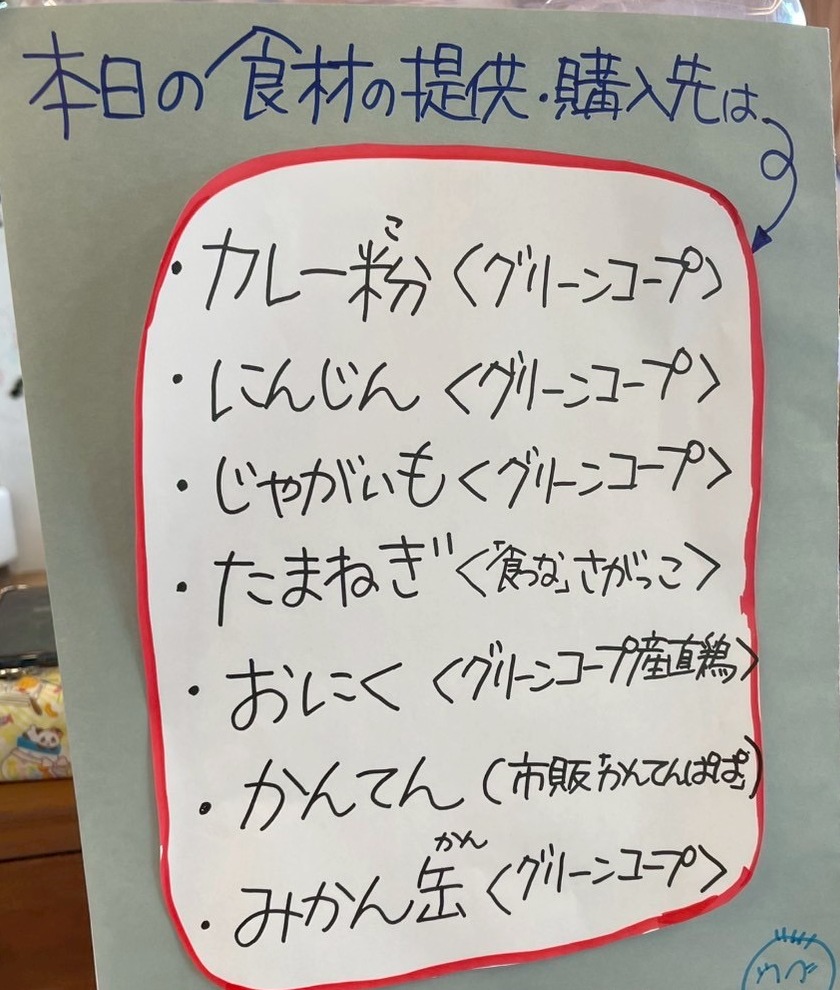 本日の食材の提供・購入先は
・カレー粉〈グリーンコープ〉
・にんじん〈グリーンコープ〉
・じゃがいも〈グリーンコープ〉
・たまねぎ〈「食つな」さがっこ〉
・おにく〈グリーンコープ産直鶏〉
・かんてん(市販「かんてんぱぱ」)
・みかん缶〈グリーンコープ〉